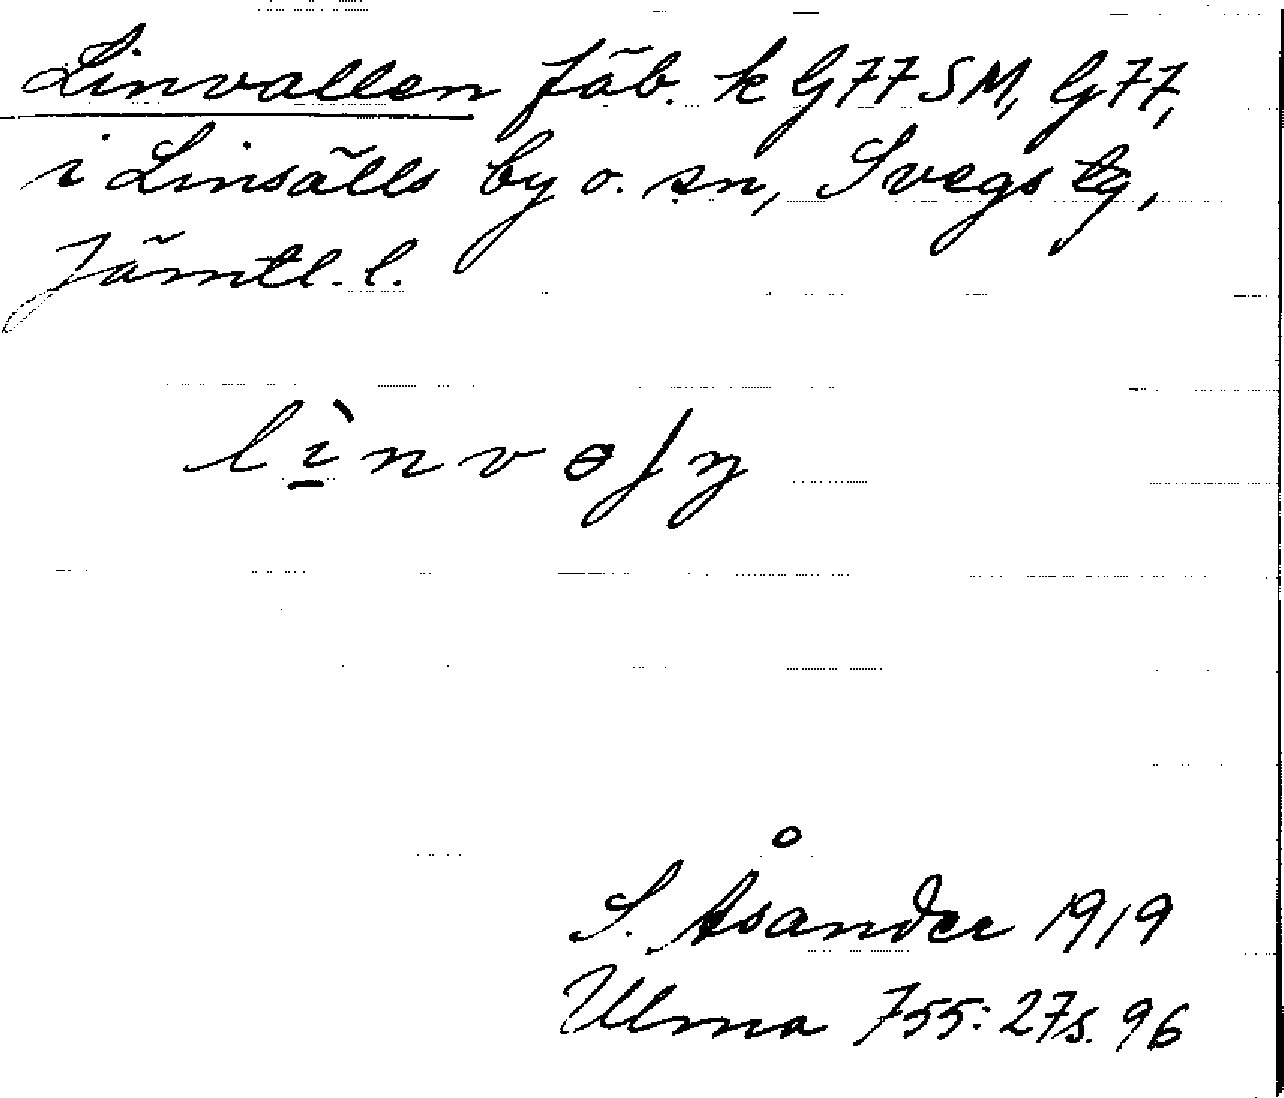 Linvallen fäb. k G77SM, G77,
i Linsälls by o. sn, Svegs tg,
Jämtl. l.
lìnvɵʃn
S. Åsander 1919
Ulma 755:27 s. 96